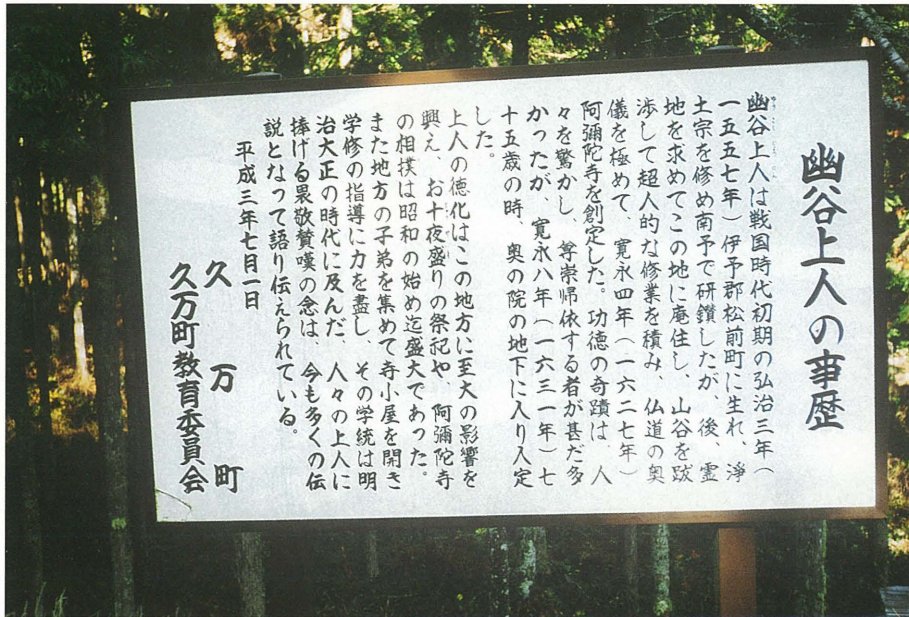 幽谷上人の事歴
幽谷上人は戦国時代初期の弘治三年（
一五五七年）伊予郡松前町に生れ、淨
土宗を修め南予で研鑽したが、後、霊
地を求めてこの地に庵住し、山谷を跋
渉して超人的な修業を積み、仏道の奥
儀を極めて、寛永四年（一六二七年）
阿彌陀寺を創定した。功徳の奇蹟は、人
々を驚かし、尊崇帰依する者が甚だ多
かったが、寛永八年（一六三一年）七
十五歳の時、奥の院の地下に入り入定
した。
上人の徳化はこの地方に至大の影響を
興え、お十夜盛りの祭祀や、阿彌陀寺
の相撲は昭和の始め迄盛大であった。
また地方の子弟を集めて寺小屋を開き
学修の指導に力を盡し、その学統は明
治大正の時代に及んだ、人々の上人に
捧げる畏敬賛嘆の念は、今も多くの伝
説となって語り伝えられている。
平成三年七月一日
久万町
久万町教育委員会